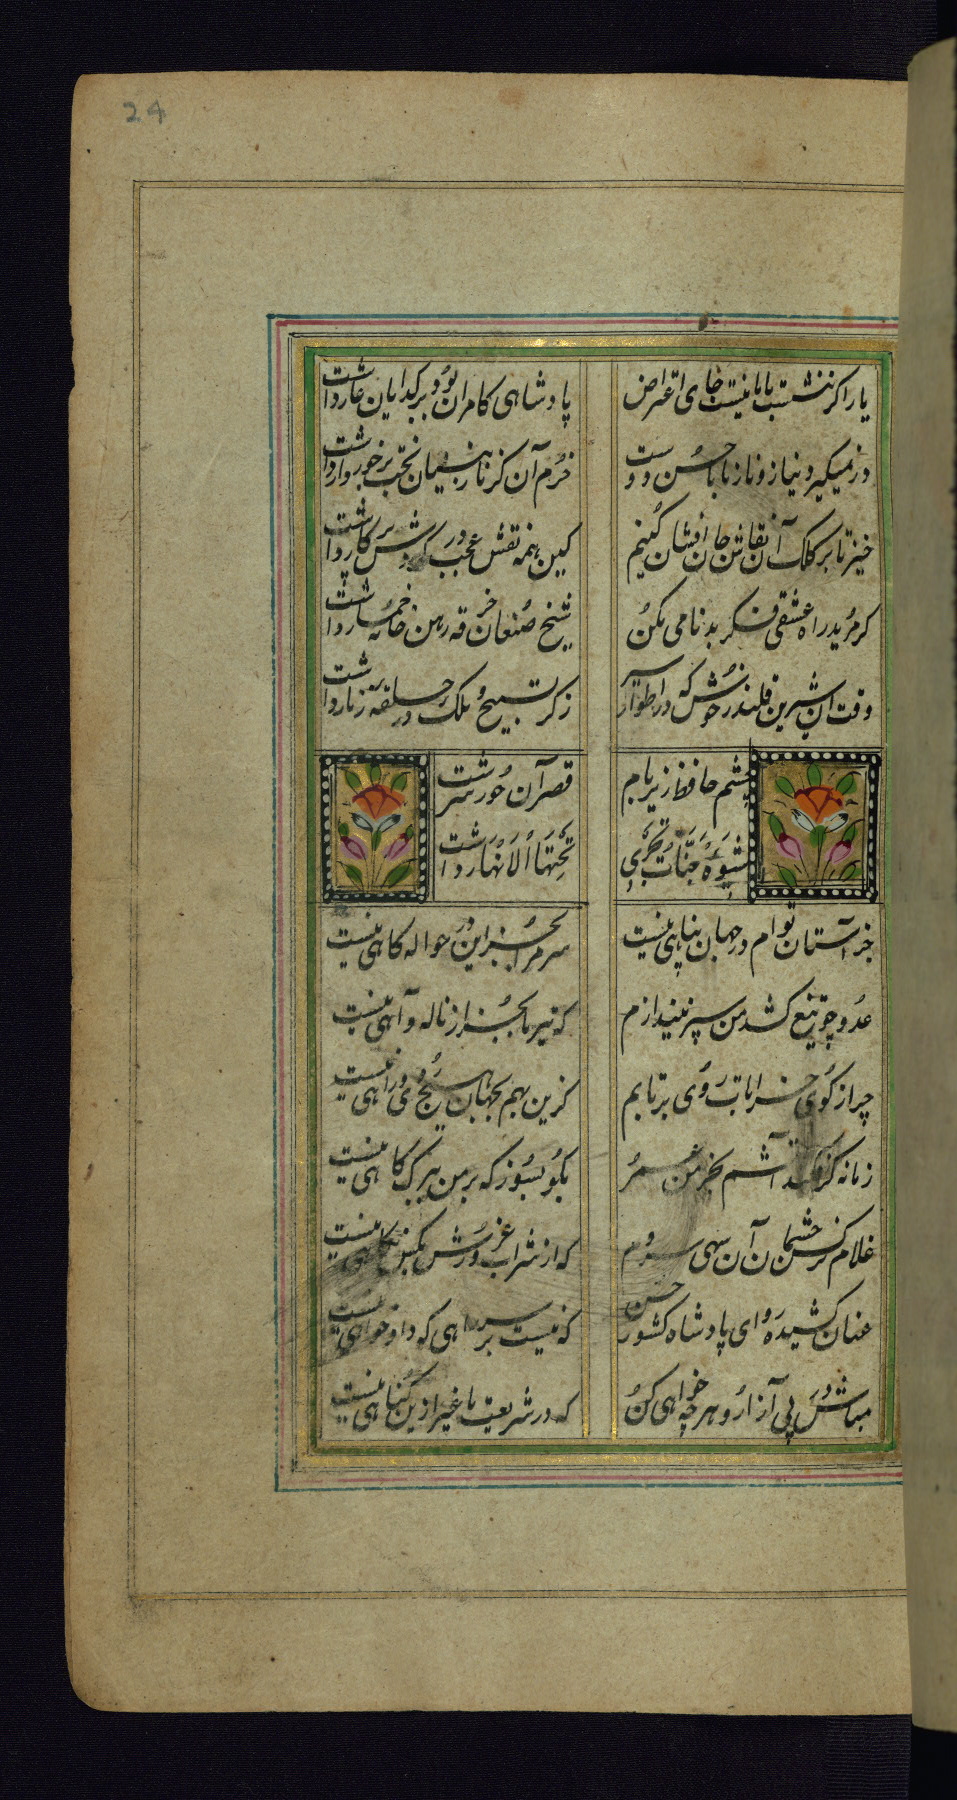 24
یار اگر ننشست با ما نیست جای اعتراض
پادشاهی کامران بود و بر گدایان عار داشت
در نمیگیرد نیاز و ناز ما با حسن دوست
خرم آن کز نازنینان بخت برخوردار داشت
خیز تا بر کلک آن نقاش جان افشان کنیم
کین همه نقش عجب در پرگار داشت
گر مرید راه عشقی فکر بدنامی مکن
شیخ صنعان خرقه رهن خانه خمار داشت
وقت آن شیرین قلندر خوش که در اطوار سیر
ذکر تسبیح و ملک در حلقه زنار داشت
چشم حافظ زیر بام
قصر آن حور سرشت
شیوه جنات تجری
تحتها الانهار داشت
جز آستان توام در جهان پناهی نیست
سر مرا بجز این در حواله گاهی نیست
عدو چو تیغ کشد من سپر بیندازم
که تیر ما بجز از ناله و آهی نیست
چرا ز کوی خرابات روی برتابم
کزین بهم بجهان هیچ روی و راهی نیست
زمانه گر فکند آتشم بخرمن عمر
بگو بسوز که بر من ببرگ کاهی نیست
غلام نرگس چشمان آن سهی سروم
که از شراب غرورش بکس نگاهی نیست
عنان کشیده رو ای پادشاه کشور حسن
که نیست بر سر راهی که دادخواهی نیست
مباش در پی آزار و هر چه خواهی کن
که در شریعت ما غیر ازین گناهی نیست